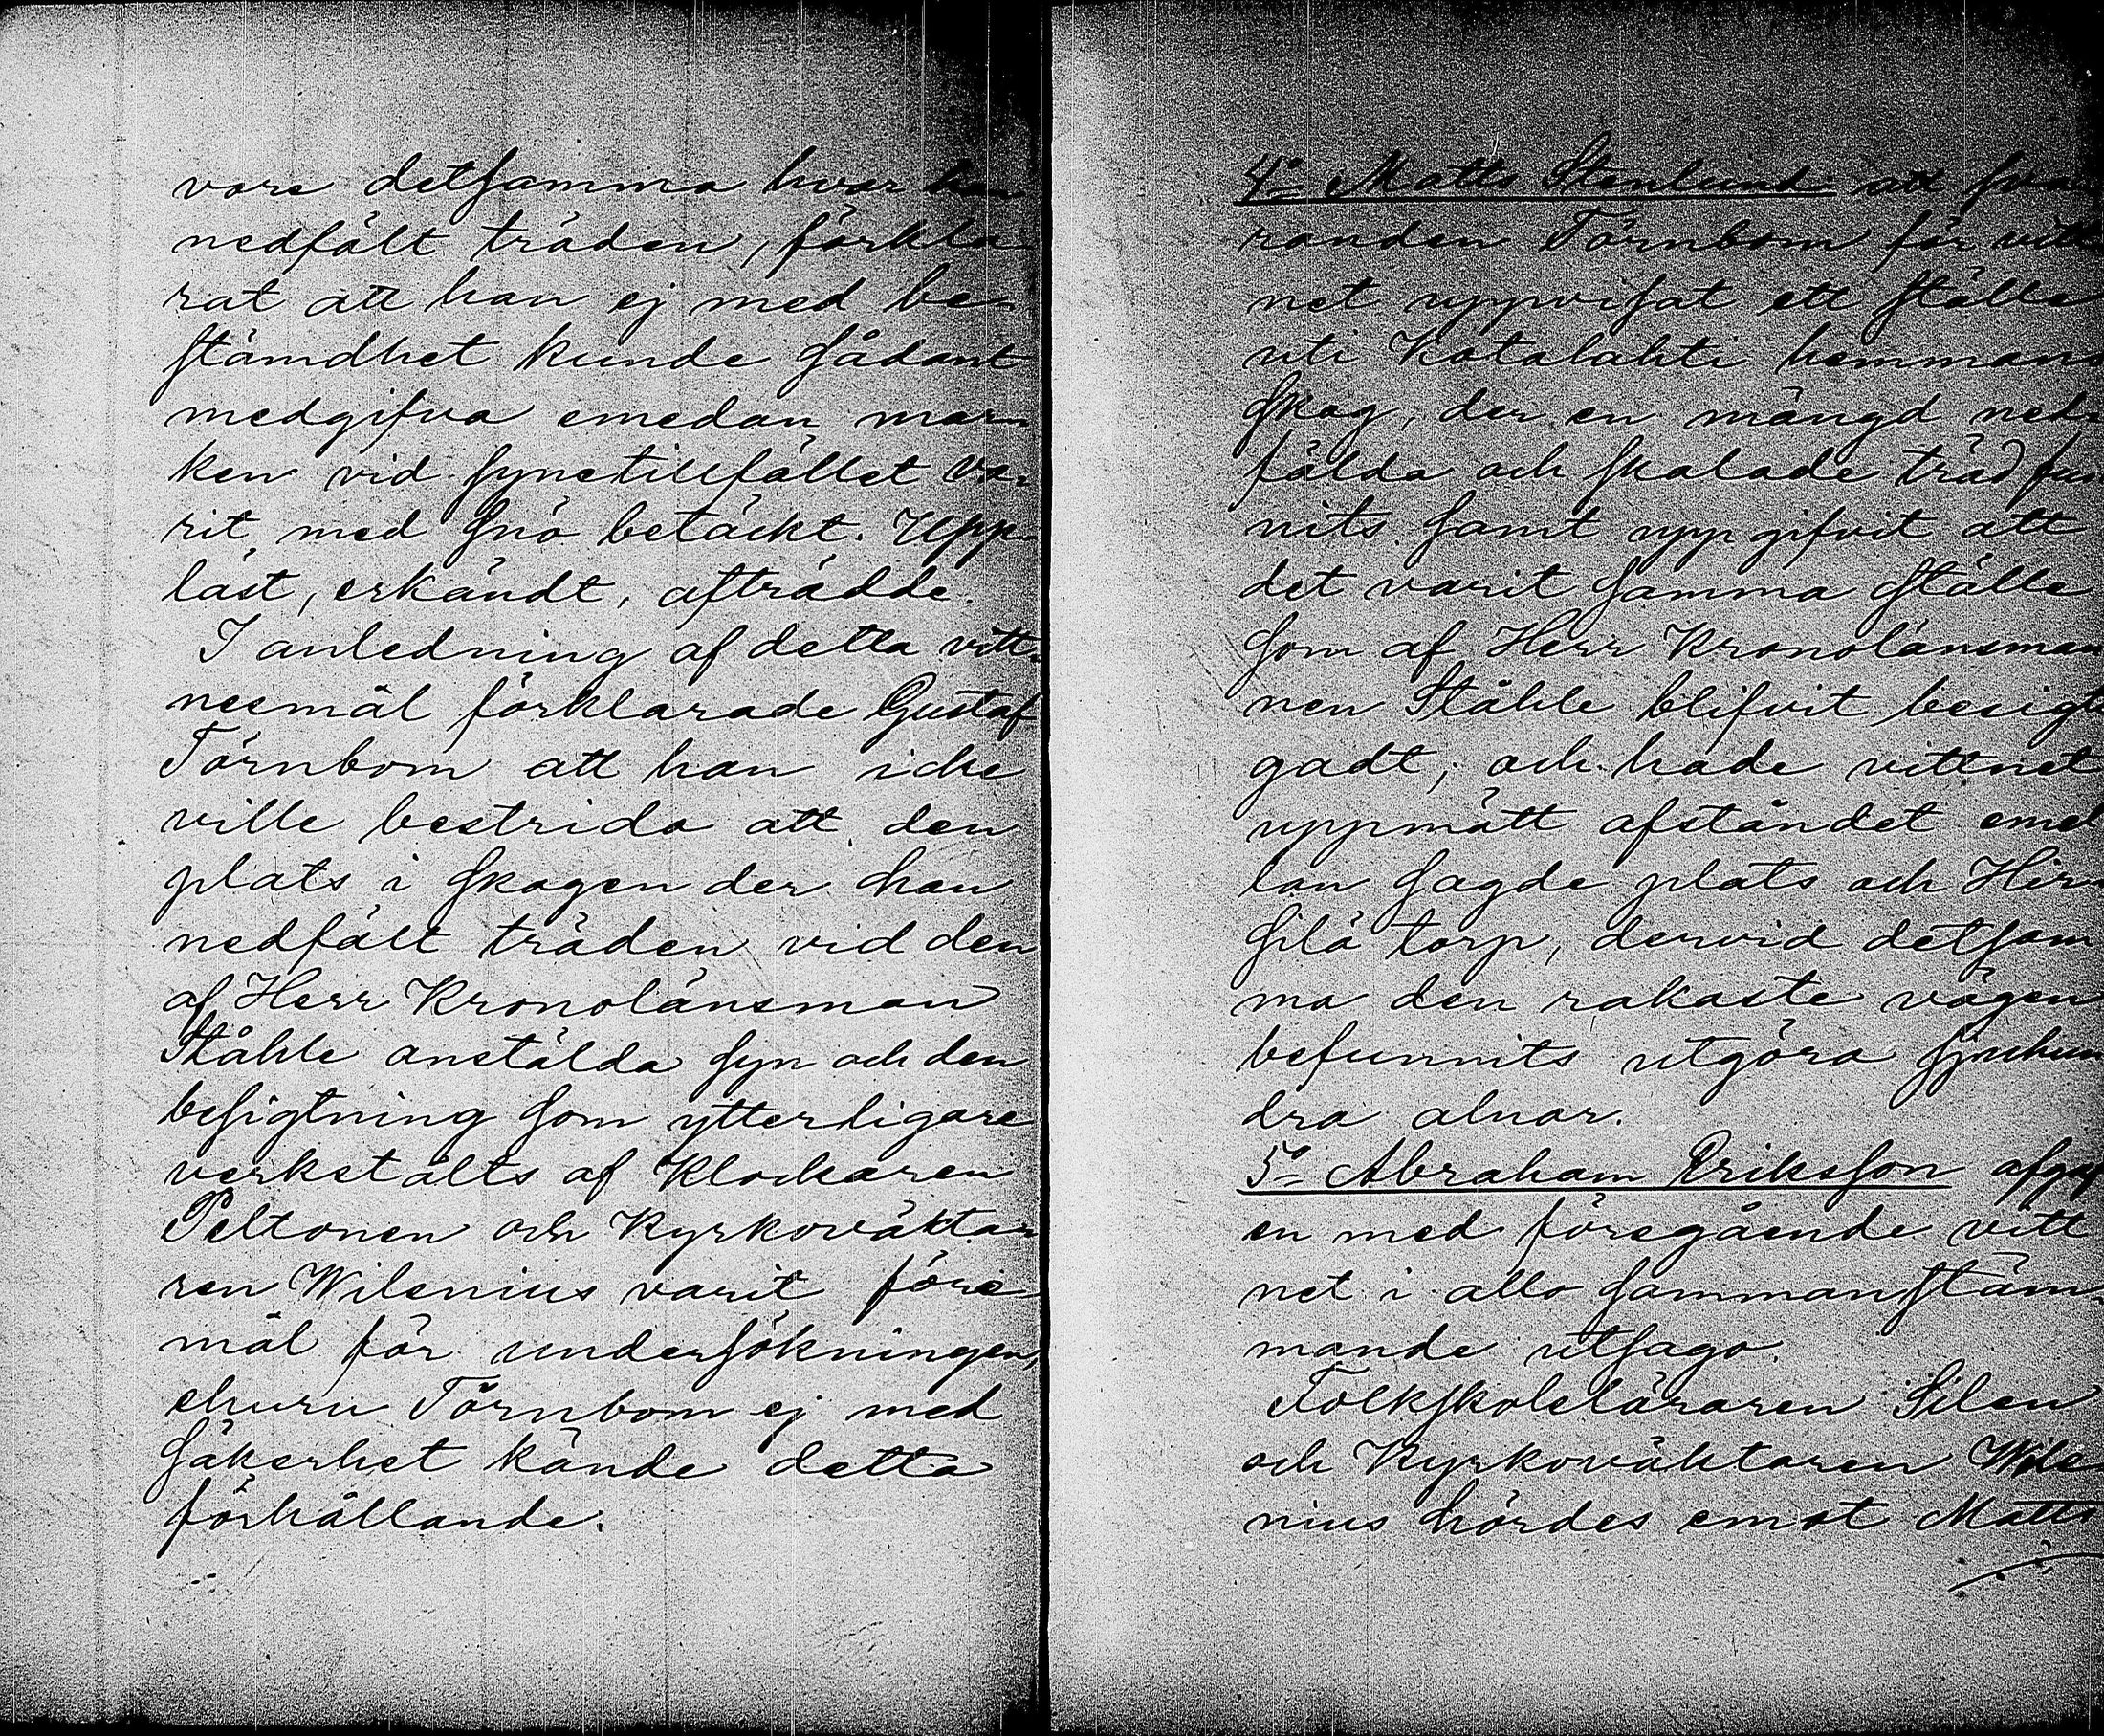 vore detsamma hvar han
nedfält träden, förkla-
rat att han ej med be-
stämdhet kunde sådant
medgifva emedan mar-
ken vid synetillfället va-
rit med snö betäckt. Upp-
läst, erkändt, afträdde.
I anledning af detta vitt-
nesmål förklarade Gustaf
Törnbom att han icke
ville bestrida att den
plats i skogen der han
nedfält träden vid den
af Herr Kronolänsman
Ståhle anstälda syn och den
besigtning som ytterligare
verkstälts af Klockaren
Peltonen och Kyrkoväkta-
ren Wilenius varit före-
mål för undersökningen,
ehuru Törnbom ej med
säkerhet kände detta
förhållande.
4o Matts Stenlund: att sva-
randen Törnbom för vitt-
net uppvisat ett ställe
uti Katalahti hemmans
skog, der en mängd ned-
fälda och skalade träd fun-
nits samt uppgifvit att
det varit samma ställe
som af Herr Kronolänsman
nen Ståhle blifvit besigt-
gadt; och hade vittnet
uppmätt afståndet emel-
lan sagde plats och Hir-
silä torp, dervid detsam-
ma den rakaste vägen
befunnits utgöra sjuhun-
dra alnar.
5o Abraham Eriksson afgaf
en med föregående vitt-
net i allo sammanstäm-
mande utsago.
Folkskoleläraren Silen
och Kyrkoväktaren Wile-
nius hördes emot Matts